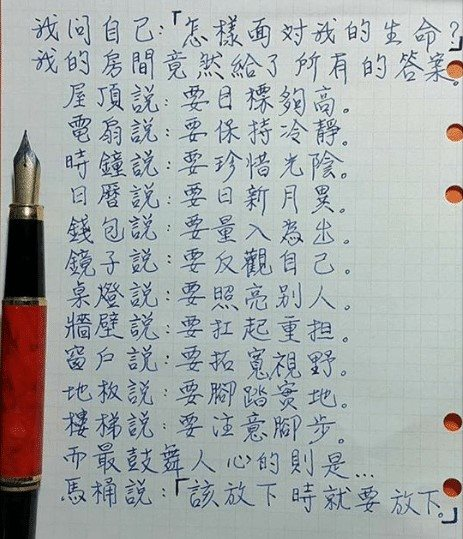 我問自己:「怎樣面對我的生命?」
我的房間竟然給了所有的答案。
屋頂説:要目標夠高。
電扇説:要保持冷靜。
時鐘説:要珍惜光陰。
日曆説:要日新月異。
錢包説:要量入為出。
鏡子説:要反觀自己。
桌燈説:要照亮別人。
牆壁説:要扛起重担。
窗戶説:要拓寬視野。
地板説:要腳踏實地。
樓梯説:要注意腳步。
而最鼓舞人心的則是...
馬桶説:「該放下時就要放下。」